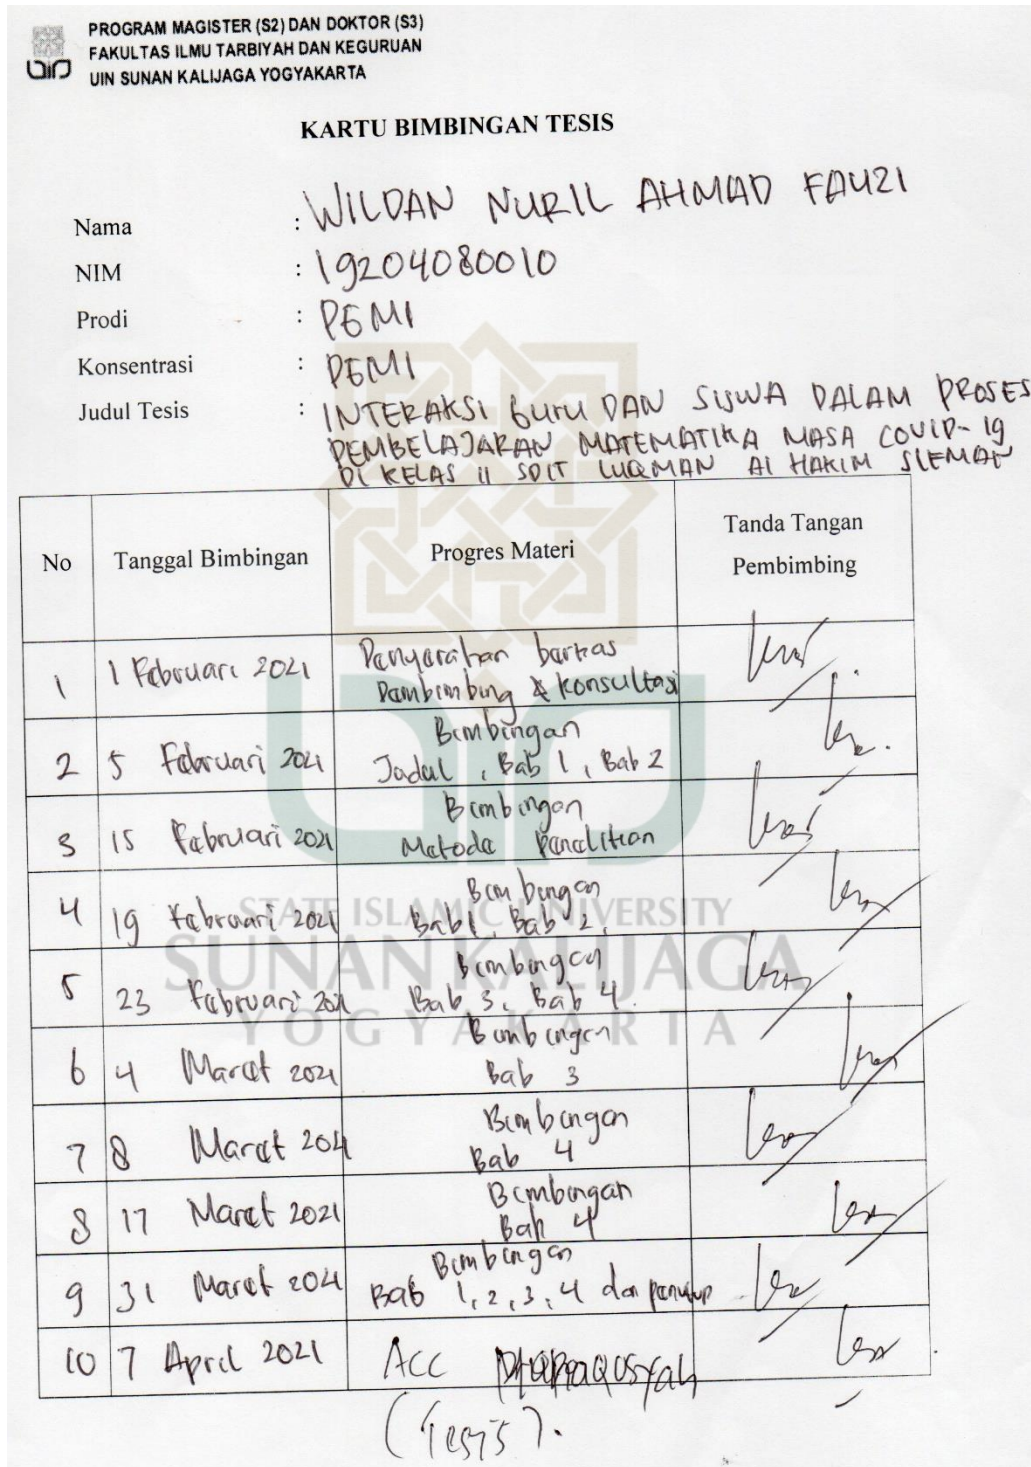 PROGRAM MAGISTER (S2) DAN DOKTOR (S3)
FAKULTAS ILMU TARBIYAH DAN KEGURUAN
UIN SUNAN KALIJAGA YOGYAKARTA
KARTU BIMBINGAN TESIS
Nama : WILDAN NURIL AHMAD FAUZI
NIM : 19204080010
Prodi : PGMI
Konsentrasi : PGMI
Judul Tesis : INTERAKSI GURU DAN SISWA DALAM PROSES
PEMBELAJARAN MATEMATIKA MASA COVID-19
DI KELAS II SDIT LUQMAN Al HAKIM SLEMAN
No Tanggal Bimbingan Progres Materi Tanda Tangan
Pembimbing
1 1 Februari 2021 Penyerahan berkas
Pembimbing & Konsultasi
2 5 Februari 2021 Bimbingan
Judul, Bab 1, Bab 2
3 15 Februari 2021 Bimbingan
Metode Penelitian
4 19 Februari 2021 Bimbingan
Bab 1, Bab 2,
5 23 Februari 2021 Bimbingan
Bab 3, Bab 4.
6 4 Maret 2021 Bimbingan
Bab 3
7 8 Maret 2021 Bimbingan
Bab 4
8 17 Maret 2021 Bimbingan
Bab 4
9 31 Maret 2021 Bimbingan
Bab 1, 2, 3, 4 dan penutup
10 7 April 2021 ACC
(Tesis).
STATE ISLAMIC UNIVERSITY
SUNAN KALIJAGA
YOGYAKARTA